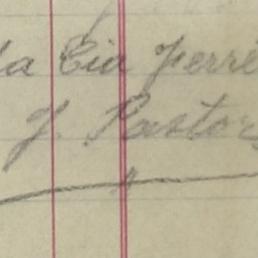 la Cia Ferre
J. Pastor